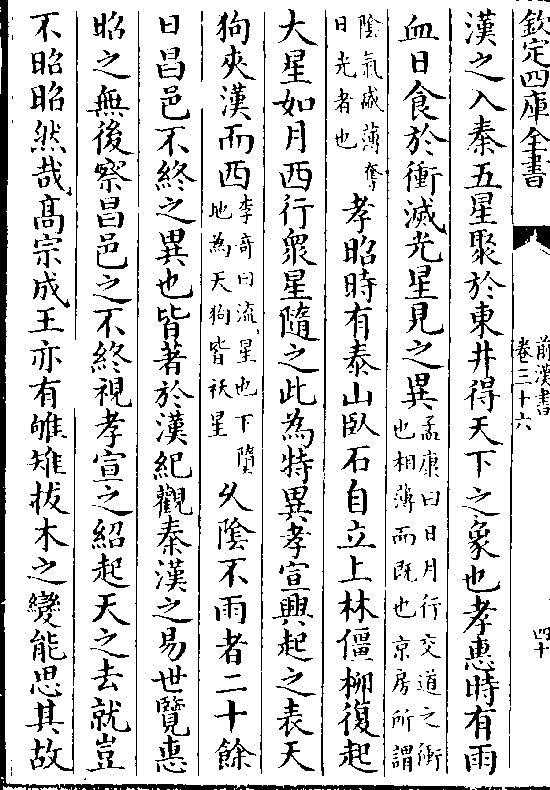 欽定四庫全書
前漢書
卷三十六
四十
漢之入秦五星聚於東井得天下之象也孝惠時有雨
血日食於衝滅光星見之異孟康曰日月行交道之衝
也相薄而既也京房所謂
陰氣盛薄奪
日光者也
孝昭時有泰山臥石自立上林僵柳復起
大星如月西行衆星隨之此為特異孝宣興起之表天
狗夾漢而西李奇曰流星也下墮
地為天狗皆祅星
久陰不雨者二十餘
日昌邑不終之異也皆著於漢紀觀秦漢之易世覽惠
昭之無後察昌邑之不終視孝宣之紹起天之去就豈
不昭昭然哉髙宗成王亦有雊雉拔木之變能思其故